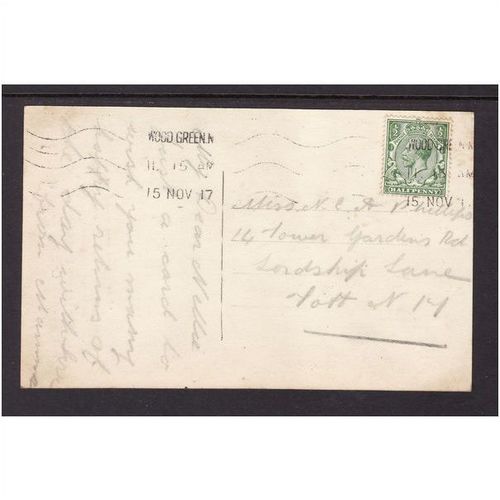 WOOD GREEN. N
11. 15 AM
15 NOV 17
WOOD GREEN N
15 NOV 1
HALFPENNY
Miss N. E. A. Phillips
14 Tower Gardens Rd
Lordship Lane
Tott N 17
My Dear Nellie
a card to
wish you many
happy returns of
day with love
from Mamma